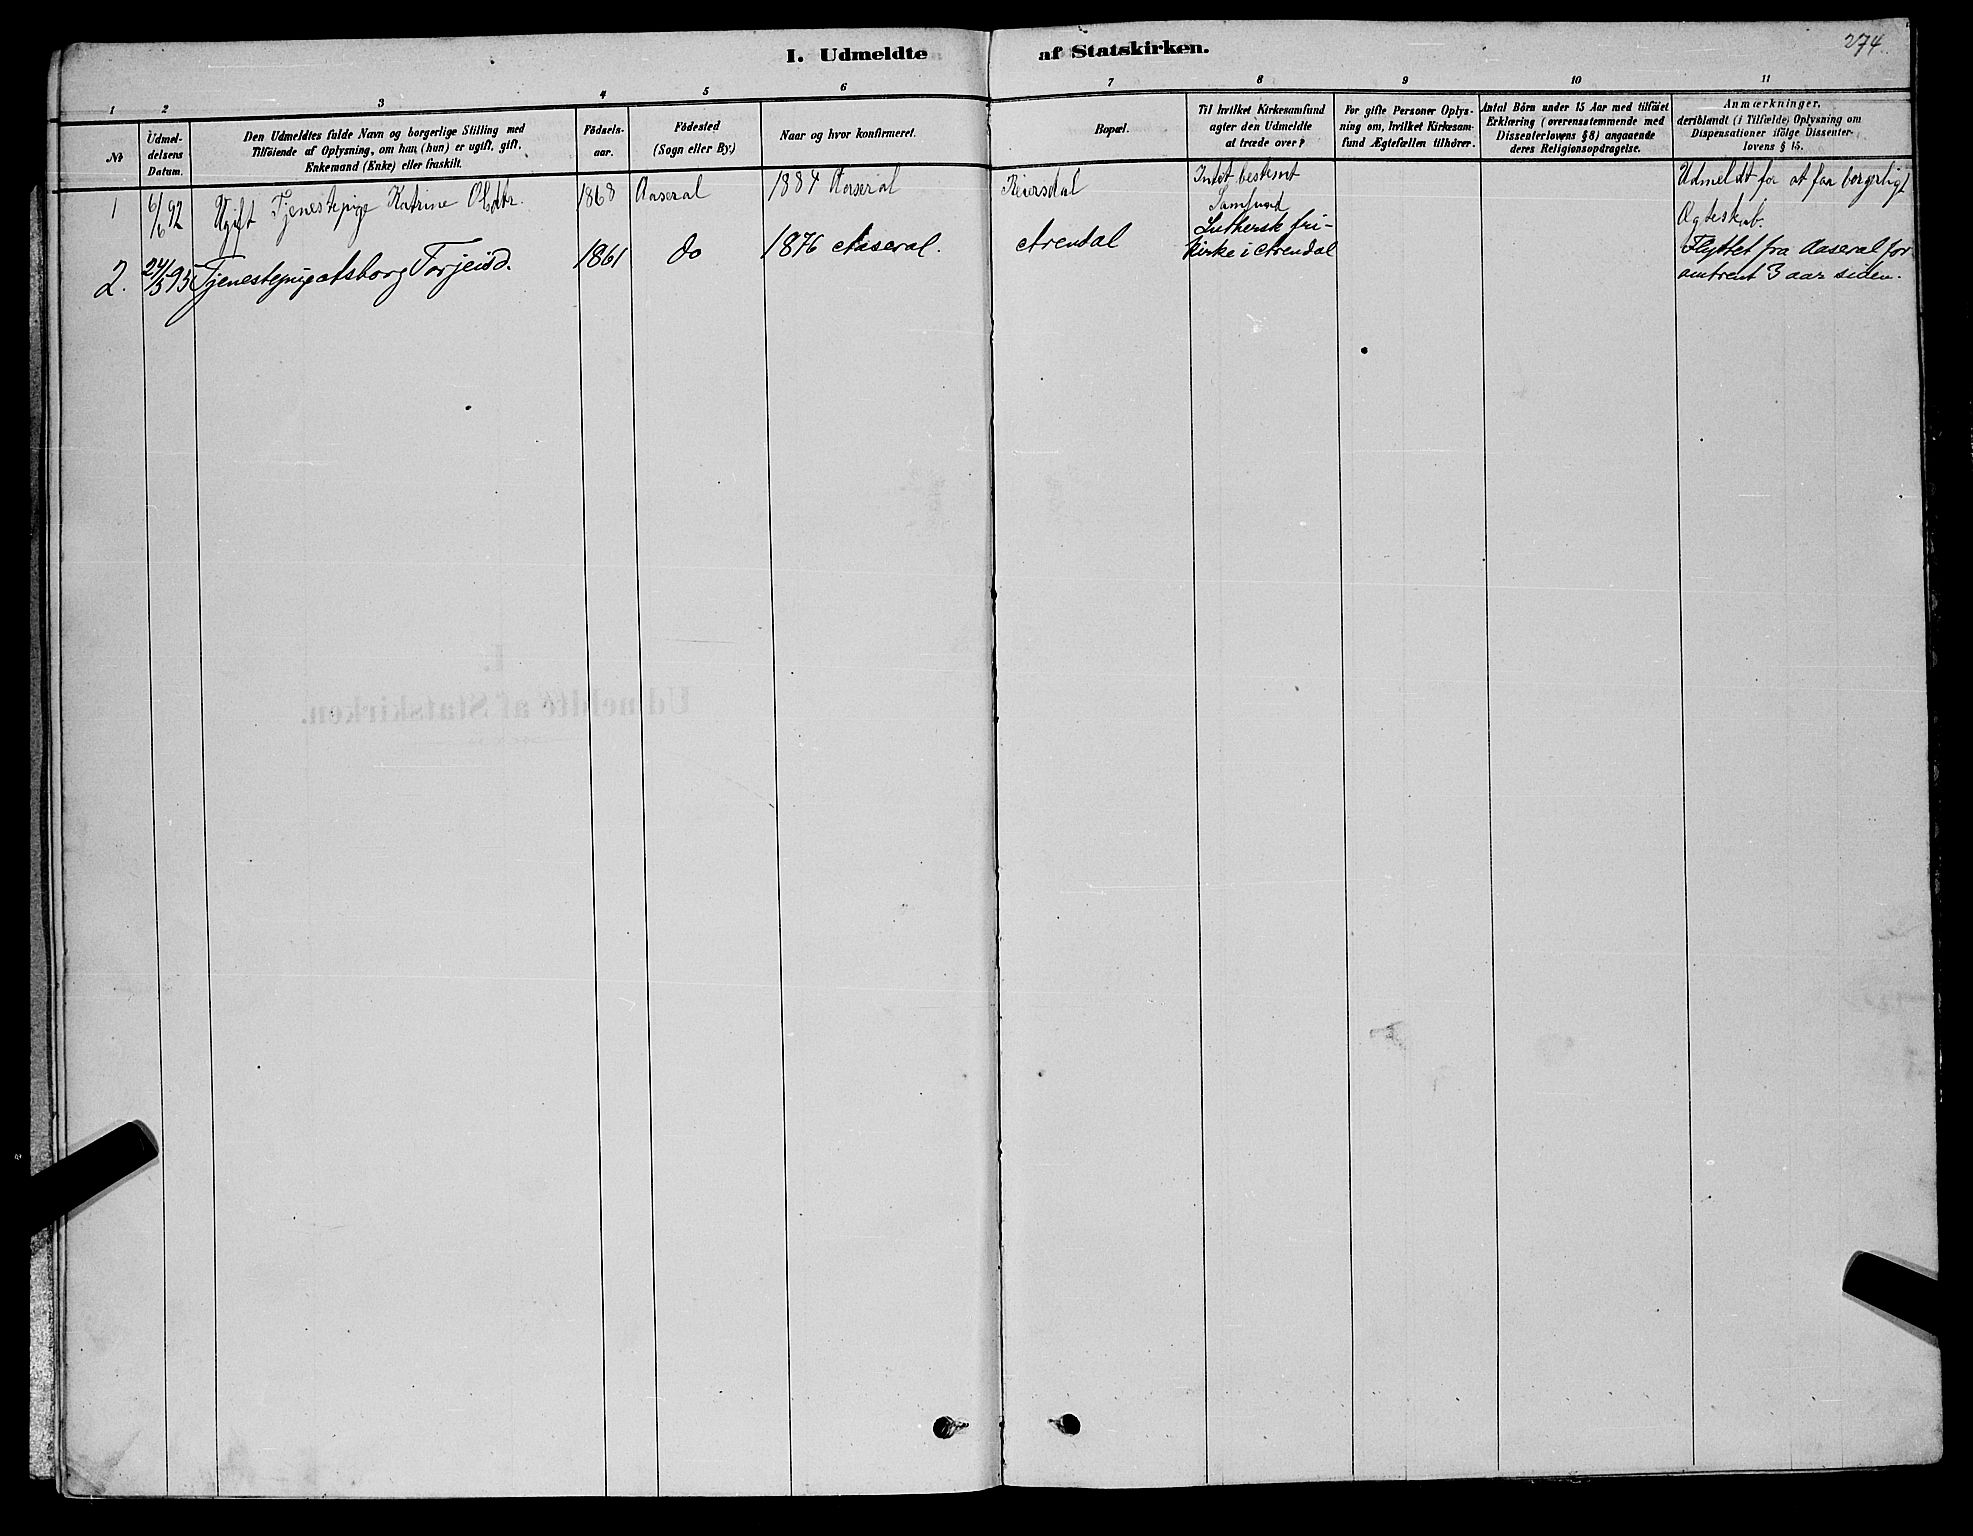 I. Udmeldte af Statskirken.
274.
1 2 3 4 5 6 7 8 9 10 11
№
Udmel-
delsens
Datum.
Den Udmeldtes fulde Navn og borgerlige Stilling med
Tilföiende af Oplysning, om han (hun) er ugift, gift,
Enkemand (Enke) eller fraskilt.
Födsels-
aar.
Födested
(Sogn eller By.)
Naar og hvor konfirmeret.
Bopæl.
Til hvilket Kirkesamfund
agter den Udmeldte
at træde over?
For gifte Personer Oplys-
ning om, hvilket Kirkesam-
fund Ægtefællen tilhörer.
Antal Börn under 15 Aar med tilföiet
Erklæring (overensstemmende med
Dissenterlovens § 8) angaaende
deres Religionsopdragelse.
Anmærkninger,
deriblandt (i Tilfælde) Oplysning om
Dispensationer ifölge Dissenter-
lovens § 15.
1
6/6 92
Ugift Tjenestepige Katrine Olsdtr.
1868
Aaseral
1884 Aaseral
Reiersdal
Intet bestemt
Samfund
Udmeldt for at faa borgerligt
Ægteskab.
2.
24/5 95
Tjenestepige Asborg Torjeisd.
1861
do
1876 Aaseral.
Arendal
Luthersk fri-
kirke i Arendal
Flyttet fra Aaseral for
omtrent 3 aar siden.
I.
Udmeldte af Statskirken.